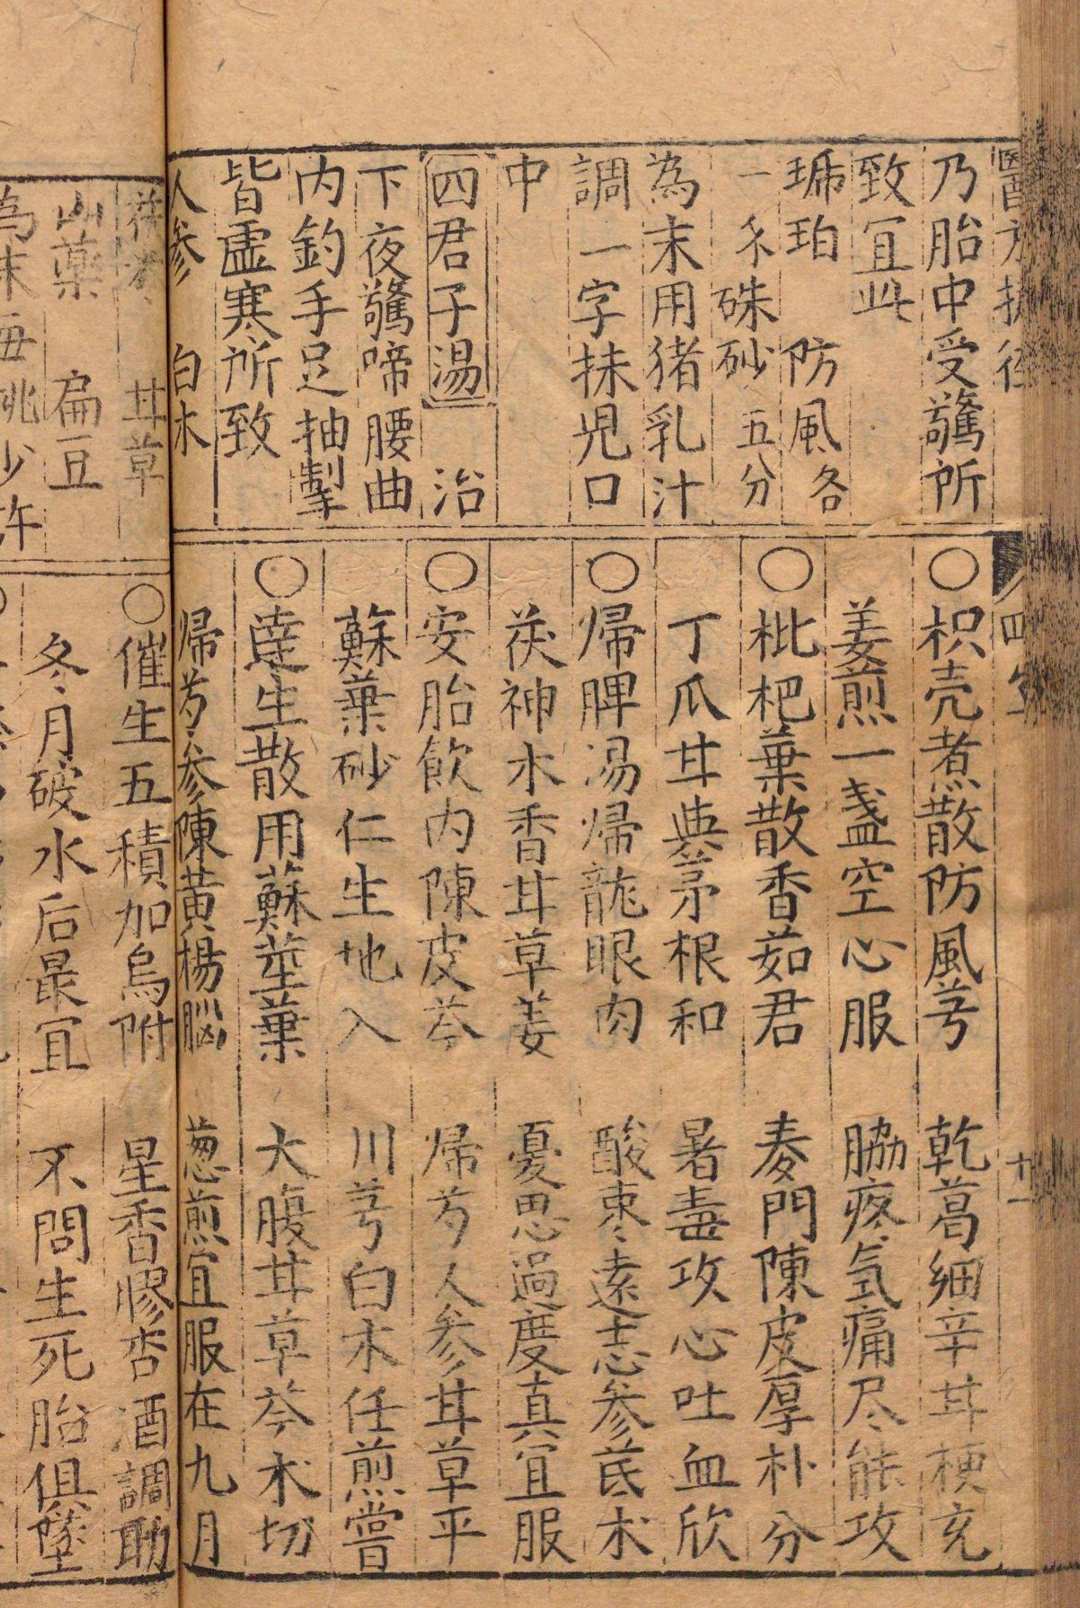 乃胎中受驚所
致冝此
琥珀　防風各
一錢　硃砂　五分
為末用猪乳汁
調一字抹児口
中
四君子湯　治
下夜驚啼腰曲
内釣手足抽掣
皆虚寒所致
人參　白朮
〇枳壳煮散防風芎　乾葛細辛甘梗充
姜煎一盞空心服　脇疼気痛尽能攻
〇枇杷葉散香茹君　麦門陳皮厚朴分
丁瓜甘典茅根和　暑毒攻心吐血欣
〇帰脾湯帰龍眼肉　酸枣遠志參芪朮
茯神木香甘草姜　憂思過度真冝服
〇安胎飲内陳皮芩　帰芍人參甘草平
蘇葉砂仁生地入　川芎白朮任煎嘗
〇達生散用蘇莖葉　大腹甘草芩朮切
帰芍參陳黄楊腦　葱煎冝服在九月
山藥　扁豆
為末每挑少許
〇催生五積加烏附　星香膠杏酒調助
冬月破水后最冝　不問生死胎俱墜